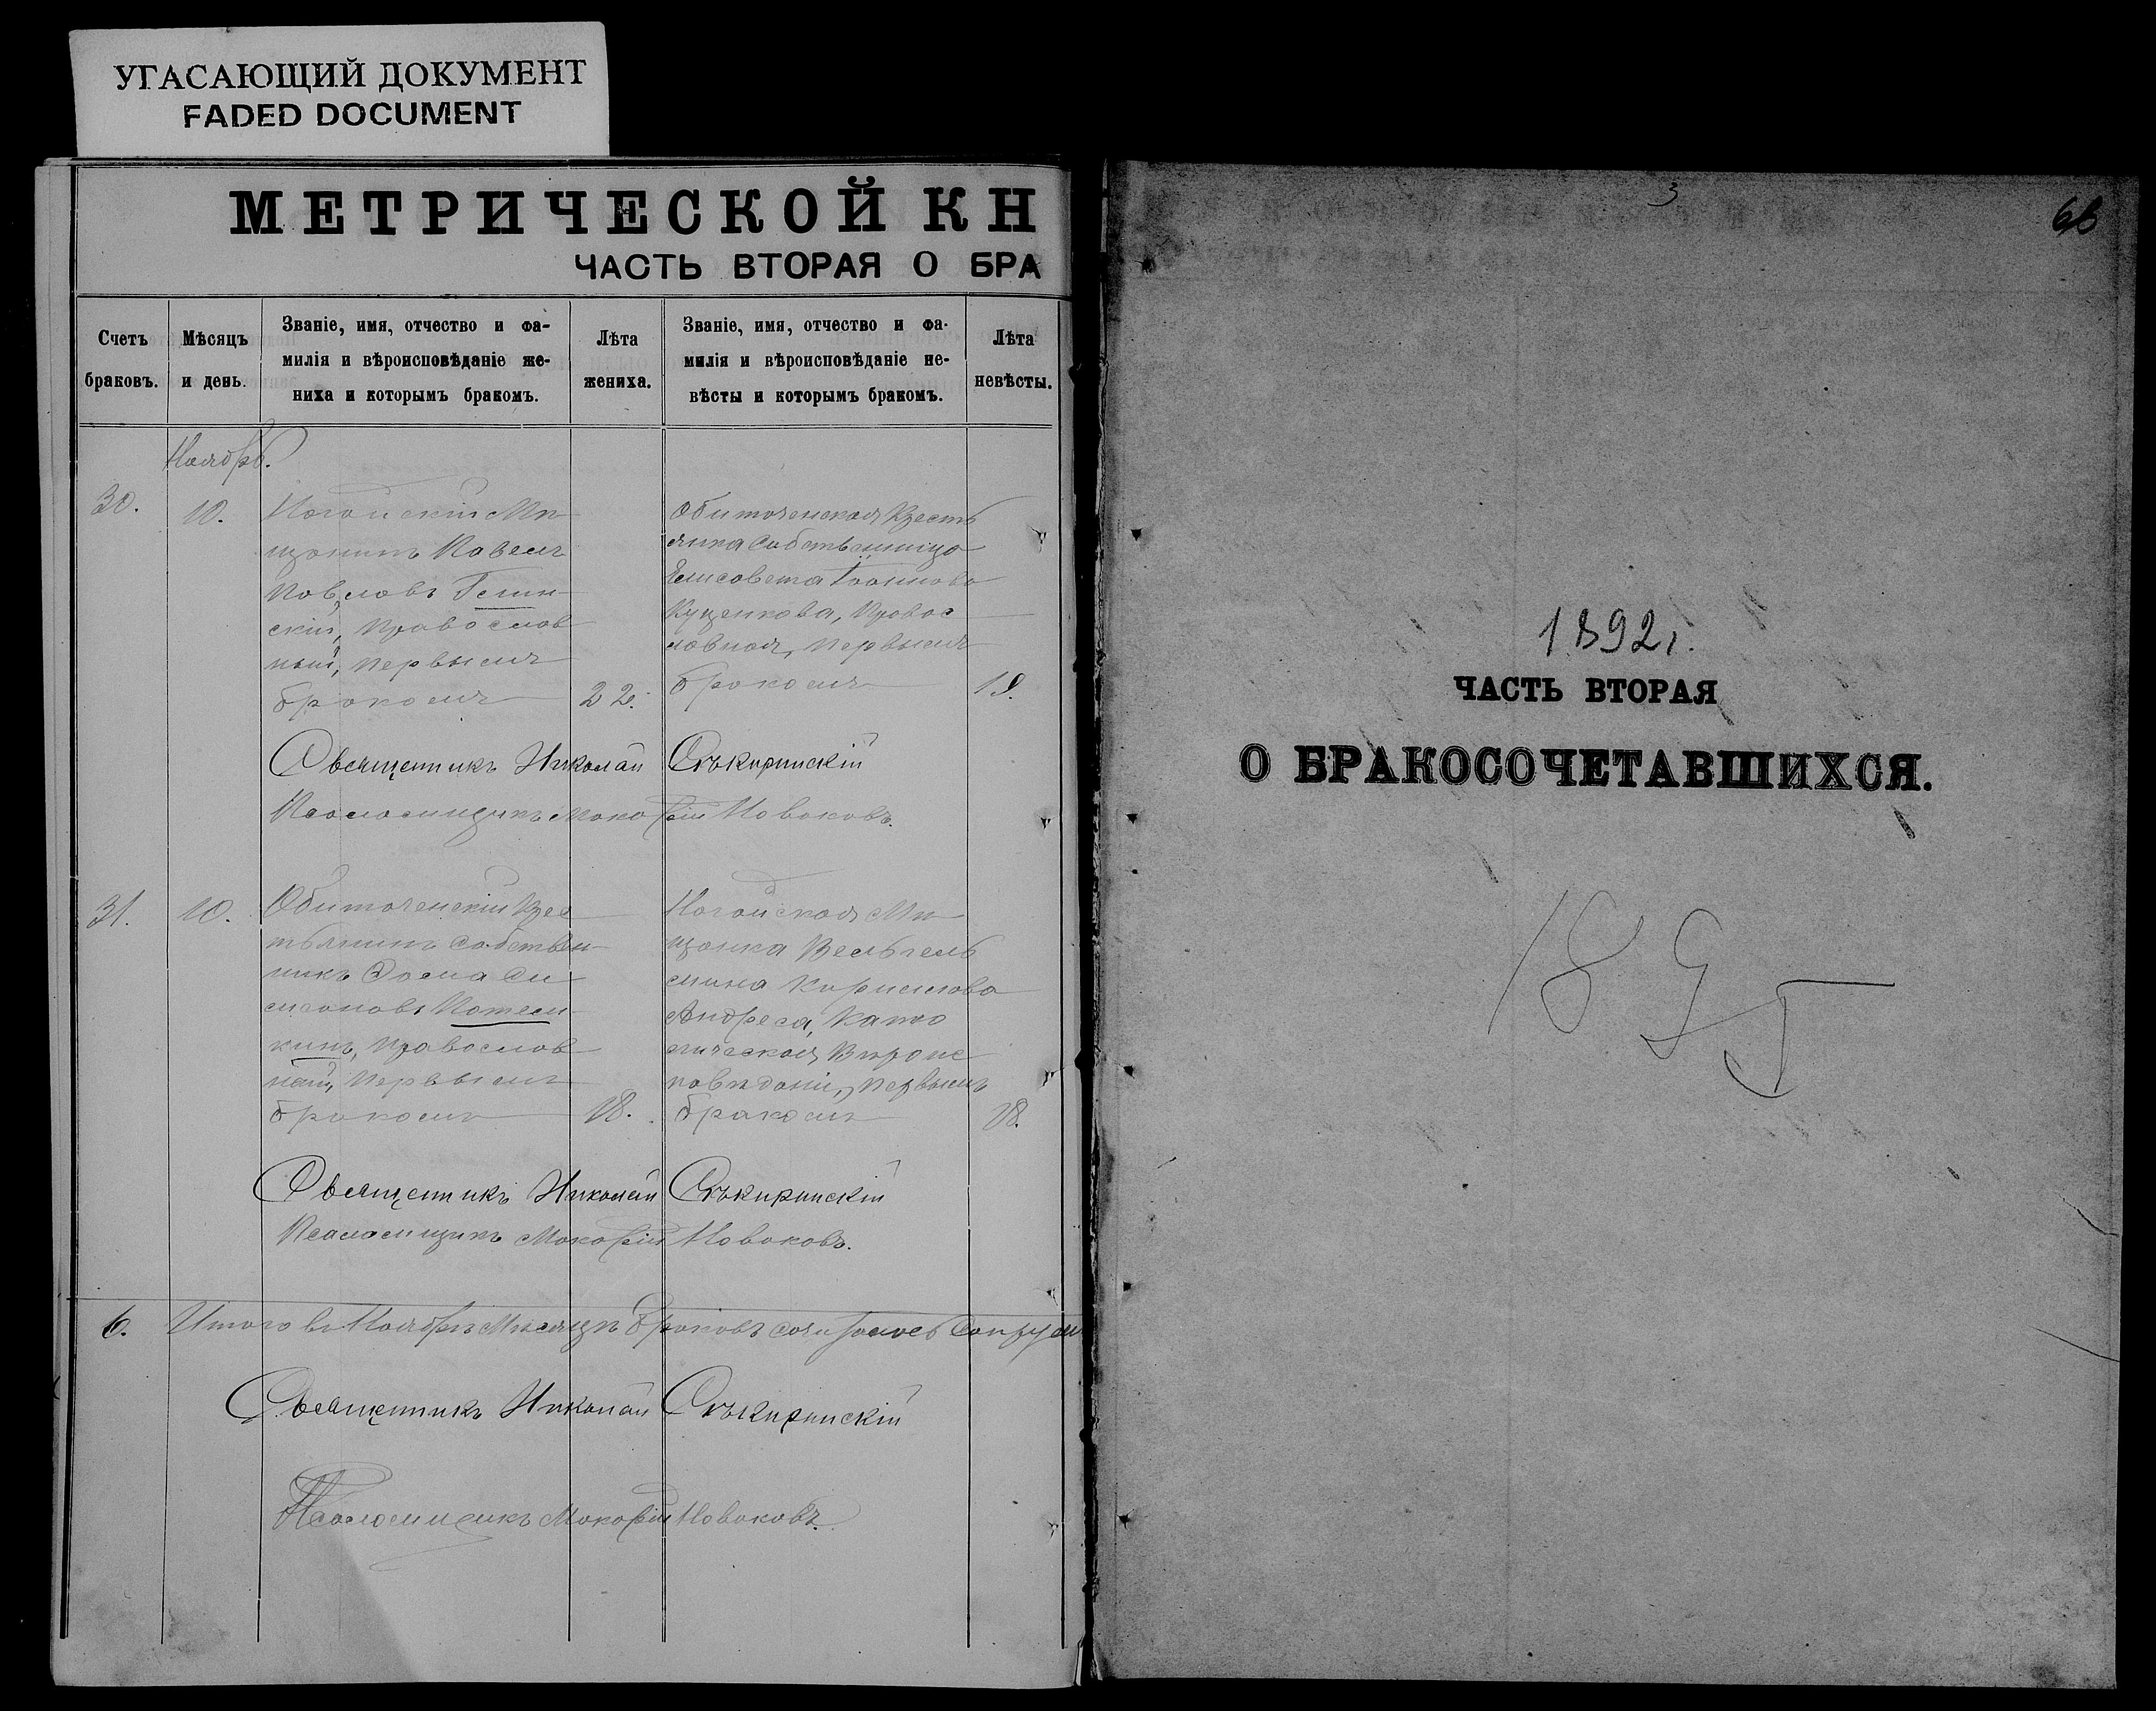 УГАСАЮЩИЙ ДОКУМЕНТ
FADED DOCUMENT
МЕТРИЧЕСКОЙ КН
ЧАСТЬ ВТОРАЯ О БРА
Счетъ браковъ.
Мѣсяцъ и день.
Званіе, имя, отчество и фа-
милія и вѣроисповѣданіе же-
ниха и которымъ бракомъ.
Лѣта жениха.
Званіе, имя, отчество и фа-
милія и вѣроисповѣданіе не-
вѣсты и которымъ бракомъ.
Лѣта невѣсты.
Ноябрь.
30.
10.
Ногайскій Мѣ
щанинъ Павелъ
Павловъ
скій, православ
ный, первымъ
бракомъ
22.
Обиточенская Крестъ
янка Собственница
Елисавета Іоаннова
Куценкова, Правос
лавная, первымъ
бракомъ
19.
Священникъ Николай Съкиринскій
Псаломщикъ Макарій Новаковъ.
31.
10.
Обиточенскій Крес
тьянинъ Собствен
никъ Фома Си
меоновъ Потем
кинъ, православ
ный, первымъ
бракомъ
18.
Ногайская Мѣ
щанка Вельгель
мина Кириллова
Андреса, Като
лической Вѣроис
повѣданія, первымъ
бракомъ
18.
Священникъ Николай Съкиринскій
Псаломщикъ Макарій Новаковъ.
6. Итого въ Ноябрѣ Мѣсяцѣ браковъ
Священникъ Николай Съкиринскій
Псаломщикъ Макарій Новаковъ.
3
68
1892г.
ЧАСТЬ ВТОРАЯ
О БРАКОСОЧЕТАВШИХСЯ.